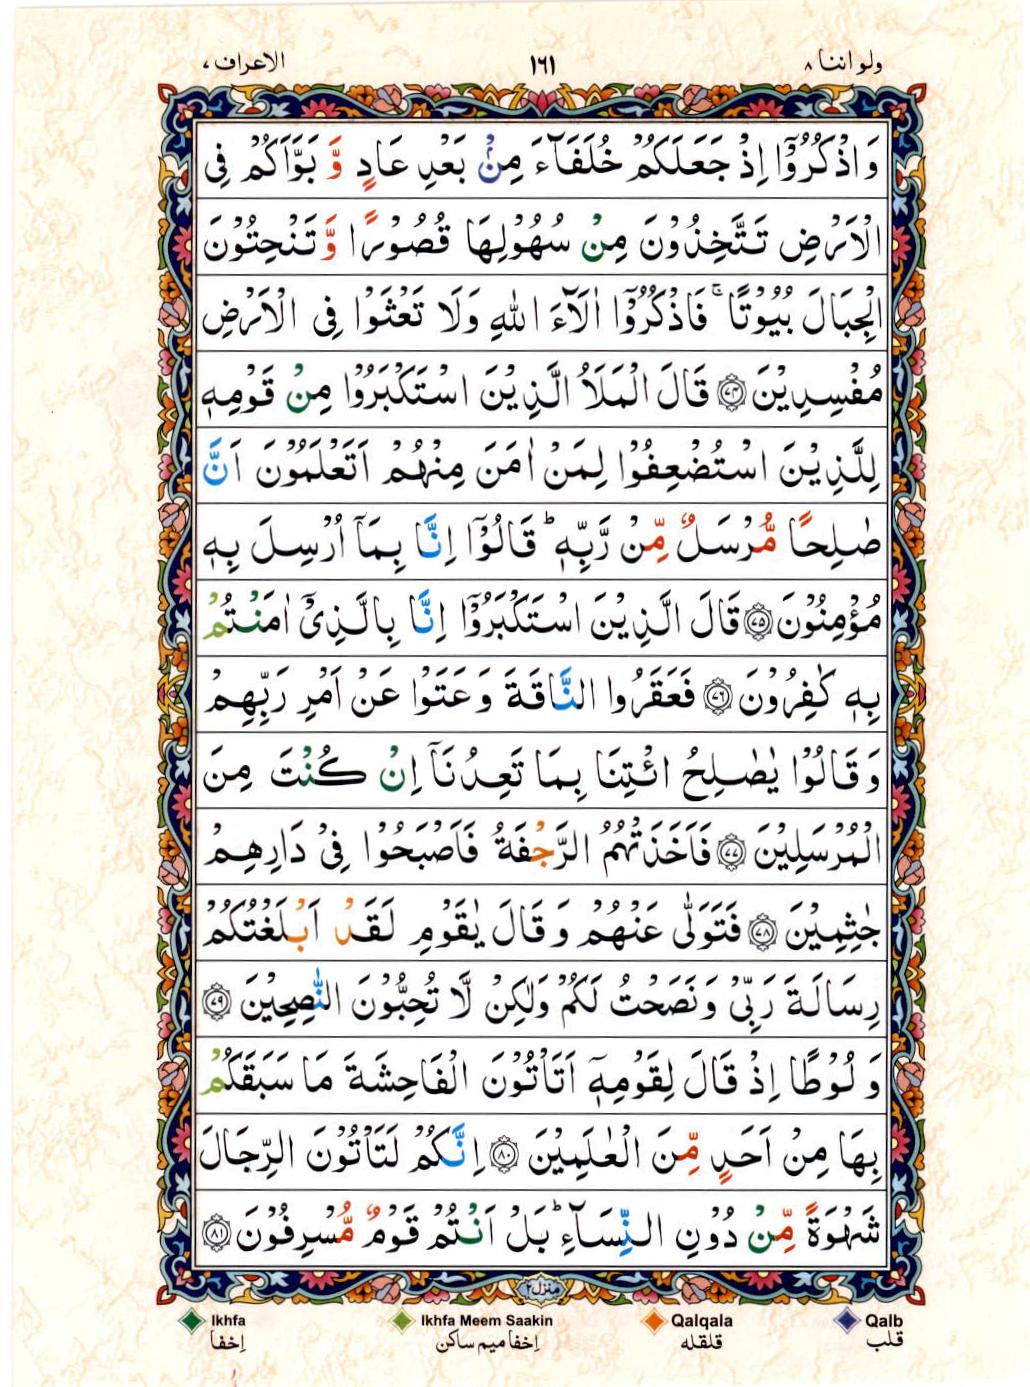 ولو اننا ۸ ١٦١ الاعراف ۷
وَاذْكُرُوْۤا اِذْ جَعَلَكُمْ خُلَفَآءَ مِنْۢ بَعْدِ عَادٍ وَّ بَوَّاَكُمْ فِی
الْاَرْضِ تَتَّخِذُوْنَ مِنْ سُهُوْلِهَا قُصُوْرًا وَّتَنْحِتُوْنَ
الْجِبَالَ بُیُوْتًا ۚ فَاذْكُرُوْۤا اٰلَآءَ اللهِ وَلَا تَعْثَوْا فِی الْاَرْضِ
مُفْسِدِیْنَ ﴿۷۴﴾ قَالَ الْمَلَاُ الَّذِیْنَ اسْتَكْبَرُوْا مِنْ قَوْمِهٖ
لِلَّذِیْنَ اسْتُضْعِفُوْا لِمَنْ اٰمَنَ مِنْهُمْ اَتَعْلَمُوْنَ اَنَّ
صٰلِحًا مُّرْسَلٌ مِّنْ رَّبِّهٖ ؕ قَالُوْۤا اِنَّا بِمَاۤ اُرْسِلَ بِهٖ
مُؤْمِنُوْنَ ﴿۷۵﴾ قَالَ الَّذِیْنَ اسْتَكْبَرُوْۤا اِنَّا بِالَّذِیْۤ اٰمَنْتُمْ
بِهٖ كٰفِرُوْنَ ﴿۷۶﴾ فَعَقَرُوا النَّاقَةَ وَعَتَوْا عَنْ اَمْرِ رَبِّهِمْ
وَقَالُوْا یٰصٰلِحُ ائْتِنَا بِمَا تَعِدُنَاۤ اِنْ كُنْتَ مِنَ
الْمُرْسَلِیْنَ ﴿۷۷﴾ فَاَخَذَتْهُمُ الرَّجْفَةُ فَاَصْبَحُوْا فِیْ دَارِهِمْ
جٰثِمِیْنَ ﴿۷۸﴾ فَتَوَلّٰی عَنْهُمْ وَقَالَ یٰقَوْمِ لَقَدْ اَبْلَغْتُكُمْ
رِسَالَةَ رَبِّیْ وَنَصَحْتُ لَكُمْ وَلٰكِنْ لَّا تُحِبُّوْنَ النّٰصِحِیْنَ ﴿۷۹﴾
وَ لُوْطًا اِذْ قَالَ لِقَوْمِهٖۤ اَتَاْتُوْنَ الْفَاحِشَةَ مَا سَبَقَكُمْ
بِهَا مِنْ اَحَدٍ مِّنَ الْعٰلَمِیْنَ ﴿۸۰﴾ اِنَّكُمْ لَتَاْتُوْنَ الرِّجَالَ
شَهْوَةً مِّنْ دُوْنِ النِّسَآءِ ؕ بَلْ اَنْتُمْ قَوْمٌ مُّسْرِفُوْنَ ﴿۸۱﴾
منزل ۲
Ikhfa Ikhfa Meem Saakin Qalqala Qalb
قلب قلقله إخفا ميم ساكن إخفا